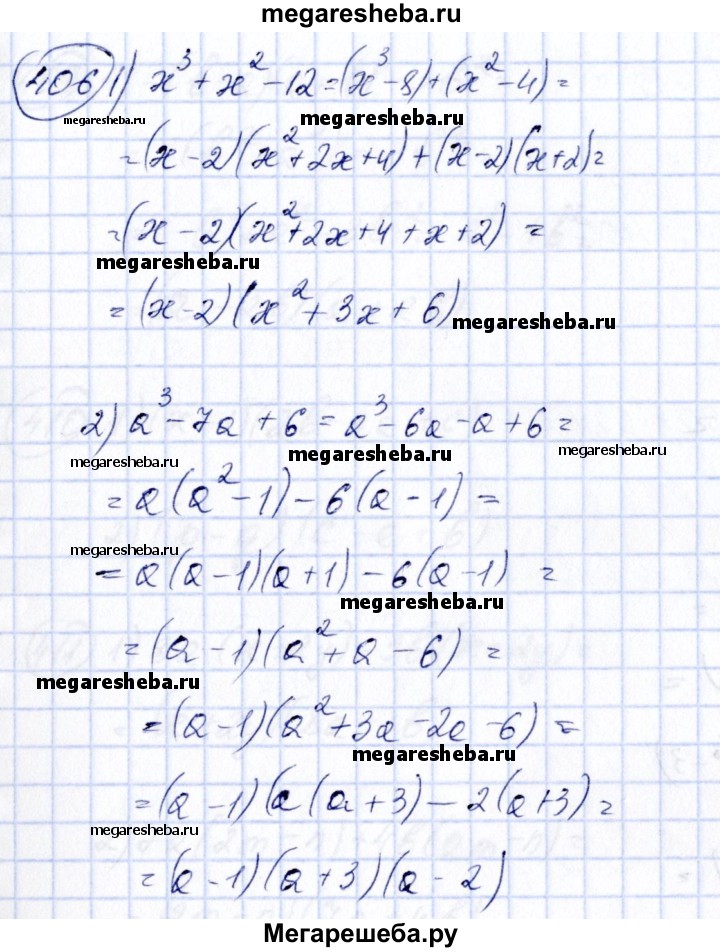 megaresheba.ru
406 1) x³ + x² - 12 = (x³ - 8) + (x² - 4) =
megaresheba.ru
megaresheba.ru
= (x - 2)(x² + 2x + 4) + (x - 2)(x + 2) =
= (x - 2)(x² + 2x + 4 + x + 2) =
megaresheba.ru
= (x - 2)(x² + 3x + 6)
megaresheba.ru
2) a³ - 7a + 6 = a³ - 6a - a + 6 =
megaresheba.ru
megaresheba.ru
= a(a² - 1) - 6(a - 1) =
megaresheba.ru
= a(a - 1)(a + 1) - 6(a - 1) =
megaresheba.ru
= (a - 1)(a² + a - 6) =
megaresheba.ru
= (a - 1)(a² + 3a - 2a - 6) =
megaresheba.ru
= (a - 1)(a(a + 3) - 2(a + 3) =
megaresheba.ru
= (a - 1)(a + 3)(a - 2)
Мегарешеба.ру